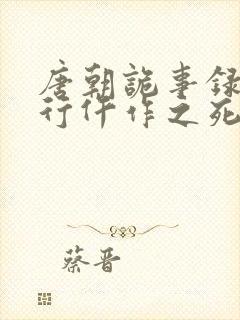 唐朝詭事録
行仵作之死
蔡晋